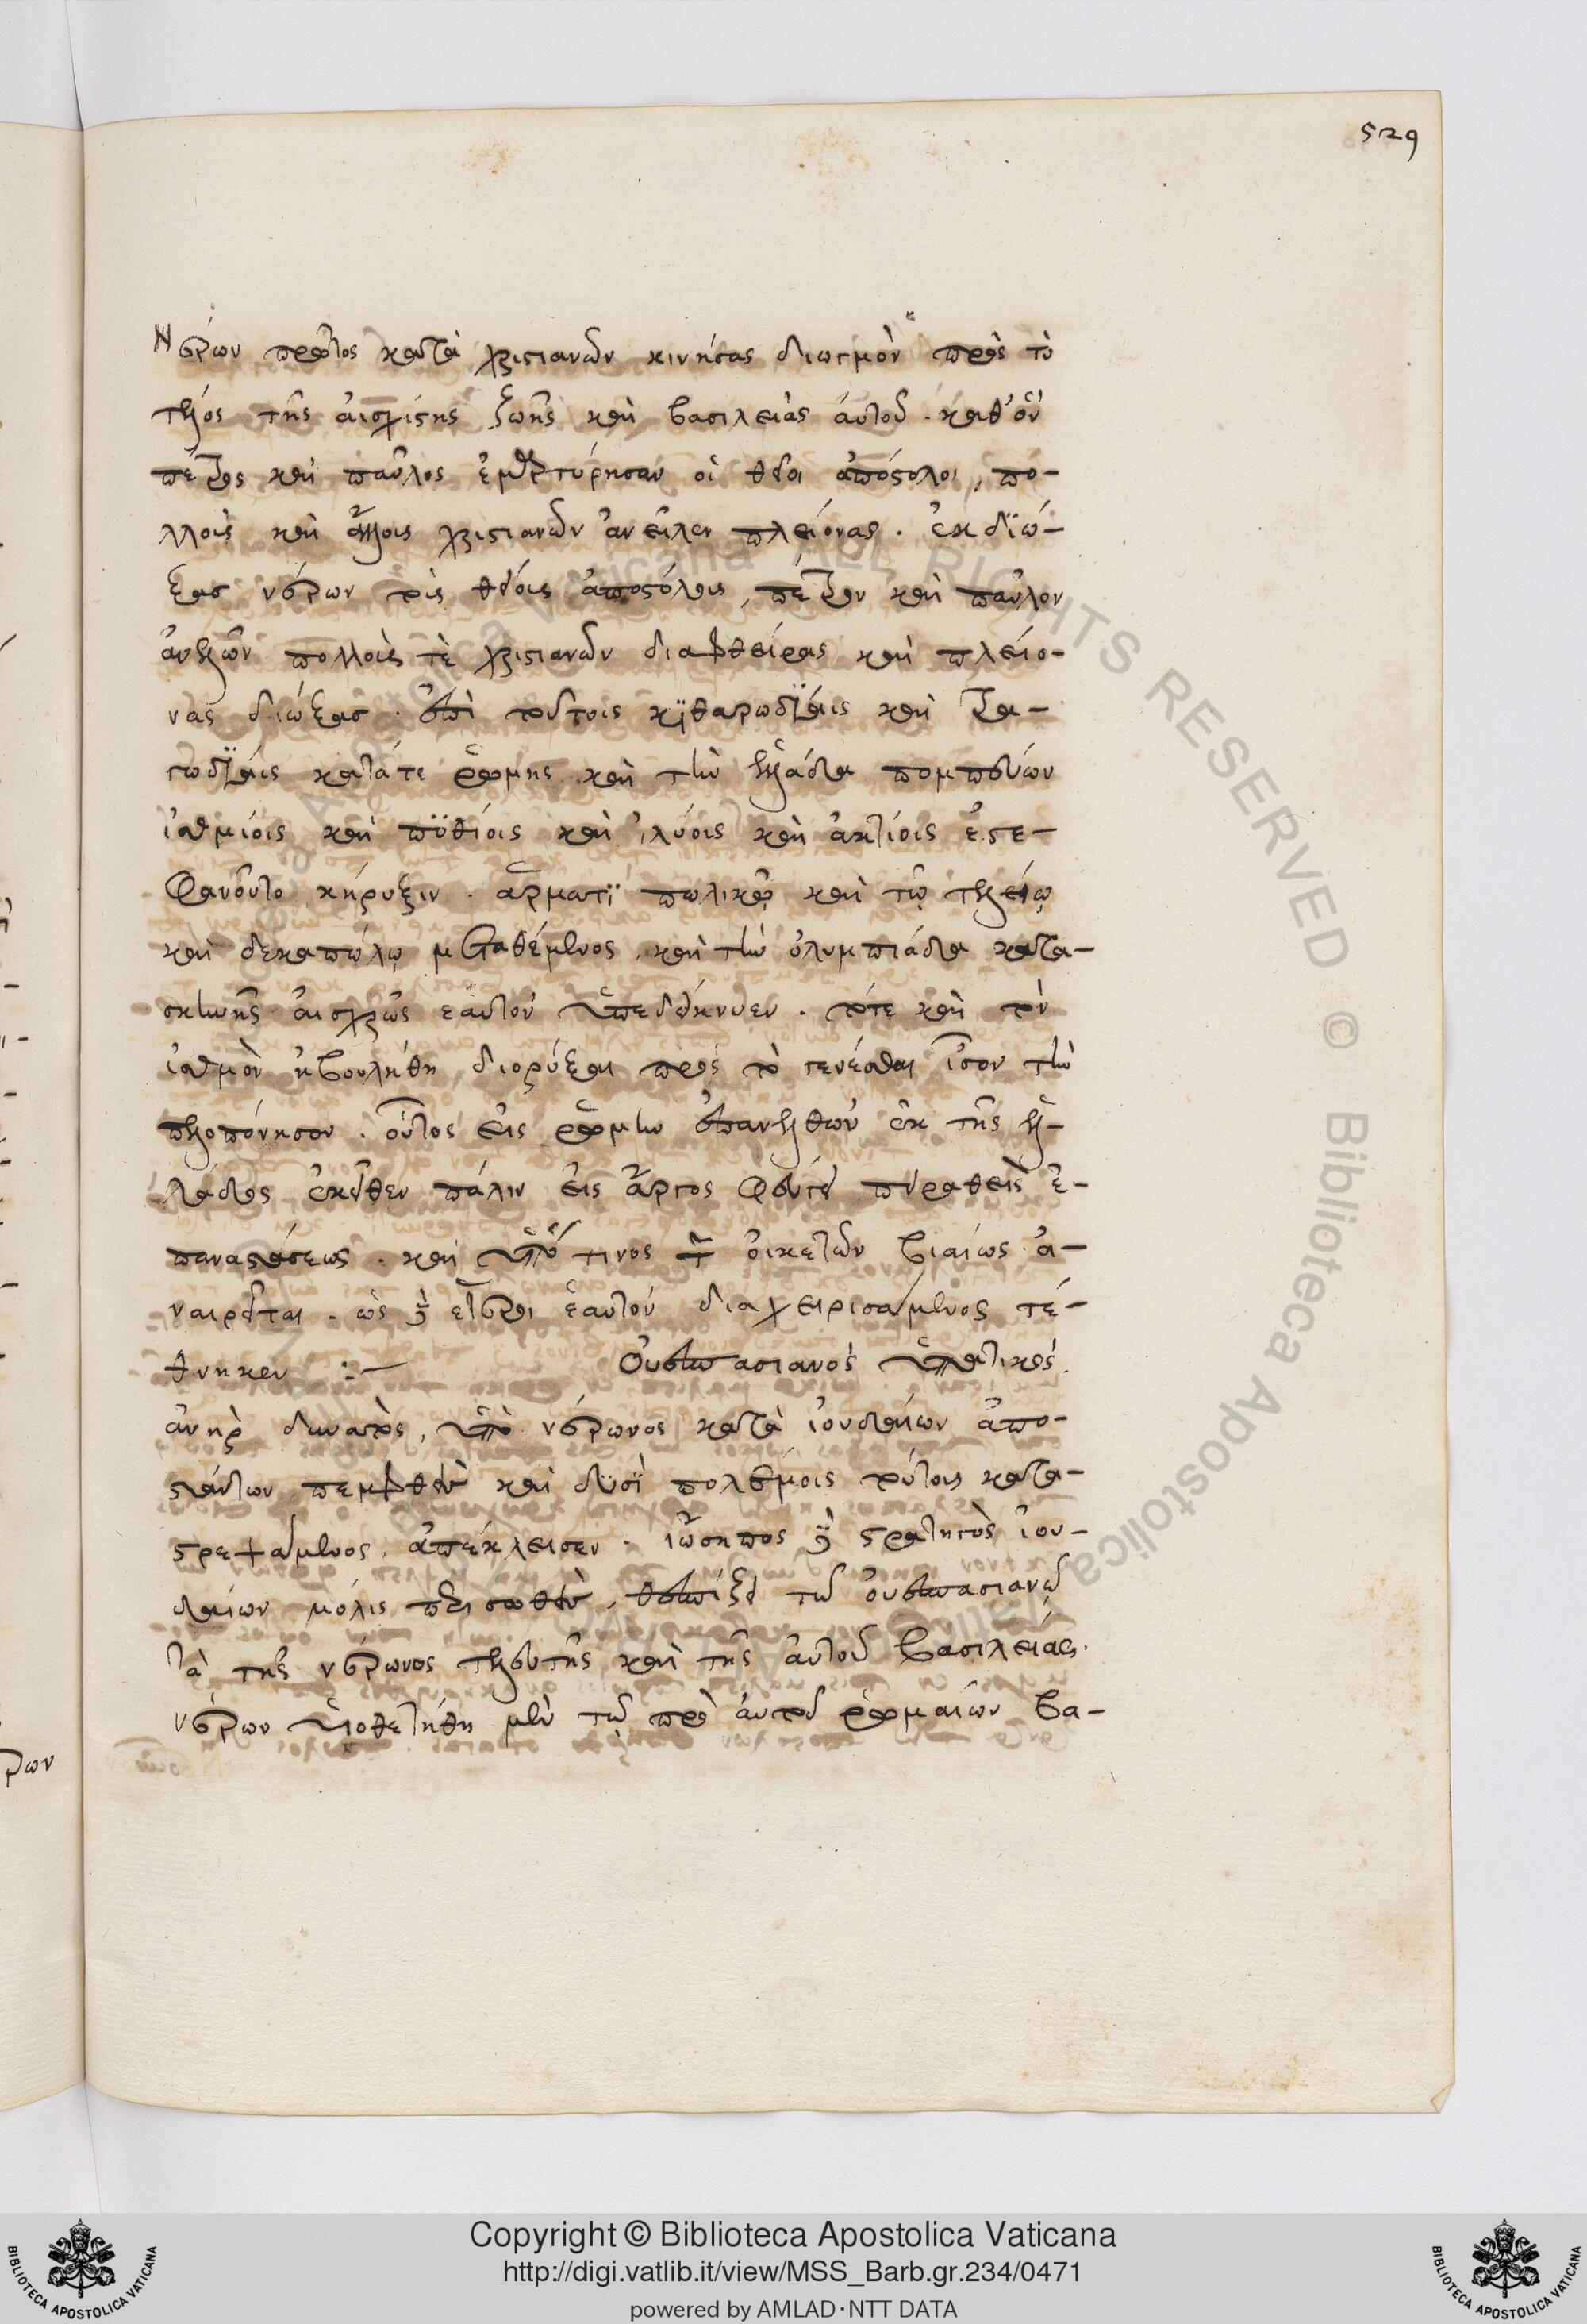 529
Νέρων πρῶτος κατὰ χριστιανῶν κινήσας διωγμὸν πρὸς τὸ
τέλος τῆς αἰσχίστης ζωῆς καὶ βασιλείας αὐτοῦ. καθ' ὃν
πέτρος καὶ παῦλος ἐμαρτύρησαν οἱ θεῖοι ἀπόστολοι, πο-
λλοὺς καὶ ἄλλους χριστιανῶν ἀνεῖλεν πλείονας. ἐκδιώ-
ξας νέρων τοὺς θείους ἀποστόλους, πέτρον καὶ παῦλον
ἀνελὼν πολλοὺς τὲ χριστιανῶν διαφθείρας καὶ πλείο-
νας διώξας. ἐπὶ τούτοις κϊθαρωδΐαις καὶ τρα-
γωδΐαις κατάτε ῥώμης καὶ τὴν ἑλλάδα πομπεύων
ἰσθμίοις καὶ πϋθίοις καὶ ἀκτίοις ἐστε-
φανοῦτο κήρυξιν. ἅρματϊ πωλικῷ καὶ τῷ τελείῳ
καὶ δεκαπώλῳ μεταθέμενος, καὶ τὴν ὀλυμπιάδα κατα-
σκευῆς αἰσχρῶς ἑαυτὸν ὑπεδείκνυεν. τότε καὶ τὸν
ἰσθμὸν ἠβουλήθη διορύξαι πρὸς τὸ γενέσθαι ἶσον τὴν
πελοπόνησον. οὗτος εἰς ῥώμην ἐπανελθὼν ἐκ τῆς ἑλ-
λάδος ἐκεῖθεν πάλιν εἰς ἄργος φεύγει πειραθεὶς ἐ-
παναστάσεως. καὶ ὑπό τινος τῶν οἰκετῶν βιαίως ἀ-
ναιρεῖται. ὡς δὲ ἕτεροι ἑαυτὸν διαχειρισάμενος τέ-
θνηκεν :- Οὐεσπασιανὸς ὑπατικὸς
ἀνὴρ δυνατὸς, ὑπὸ νέρωνος κατὰ ἰουδαίων ἀπο-
στάντων πεμφθεὶς καὶ δϋσϊ πολέμοις τούτους κατα-
στρεψάμενος, ἀπέκλεισεν. ἰώσηπος δὲ στρατηγὸς ἰου-
δαίων μόλις περισωθεὶς, θεσπίζει τῶ οὐεσπασιανῶ
τὰ τῆς νέρωνος τελευτῆς καὶ τῆς αὐτοῦ βασιλείας.
νέρων ὑιοθετήθη μὲν τῶ πρὸ αὐτοῦ ῥωμαίων βα-
ρων
Copyright © Biblioteca Apostolica Vaticana
http://digi.vatlib.it/view/MSS_Barb.gr.234/0471
powered by AMLAD·NTT DATA
BIBLIOTECA APOSTOLICA VATICANA
BIBLIOTECA APOSTOLICA VATICANA